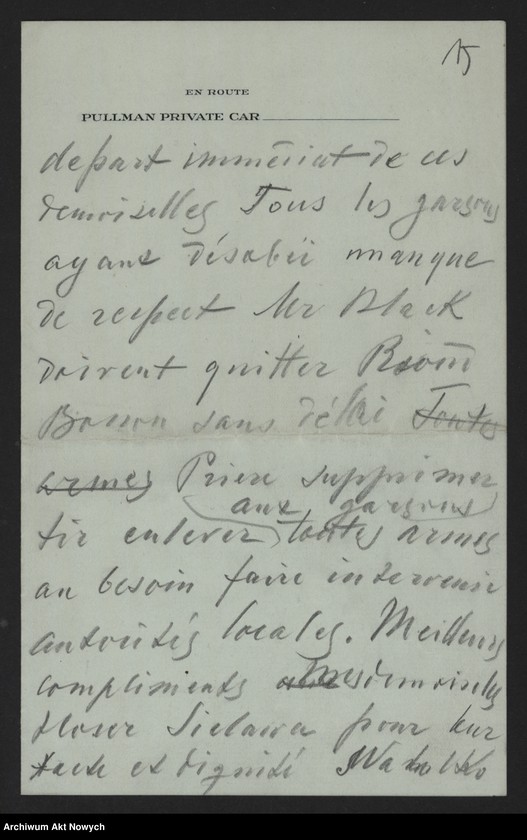 15
EN ROUTE
PULLMAN PRIVATE CAR
depart immédiat de ces
demoiselles Tous les garçons
ayant désobéi manqué
de respect Mr Black
doivent quitter Riond
Bosson sans délai Toutes
armes Prière supprimer
aux garçons
tir enlever toutes armes
au besoin faire intervenir
autorités locales. Meilleurs
compliments Mesdemoiselles
Sielawa pour leur
tacte et dignité
Archiwum Akt Nowych